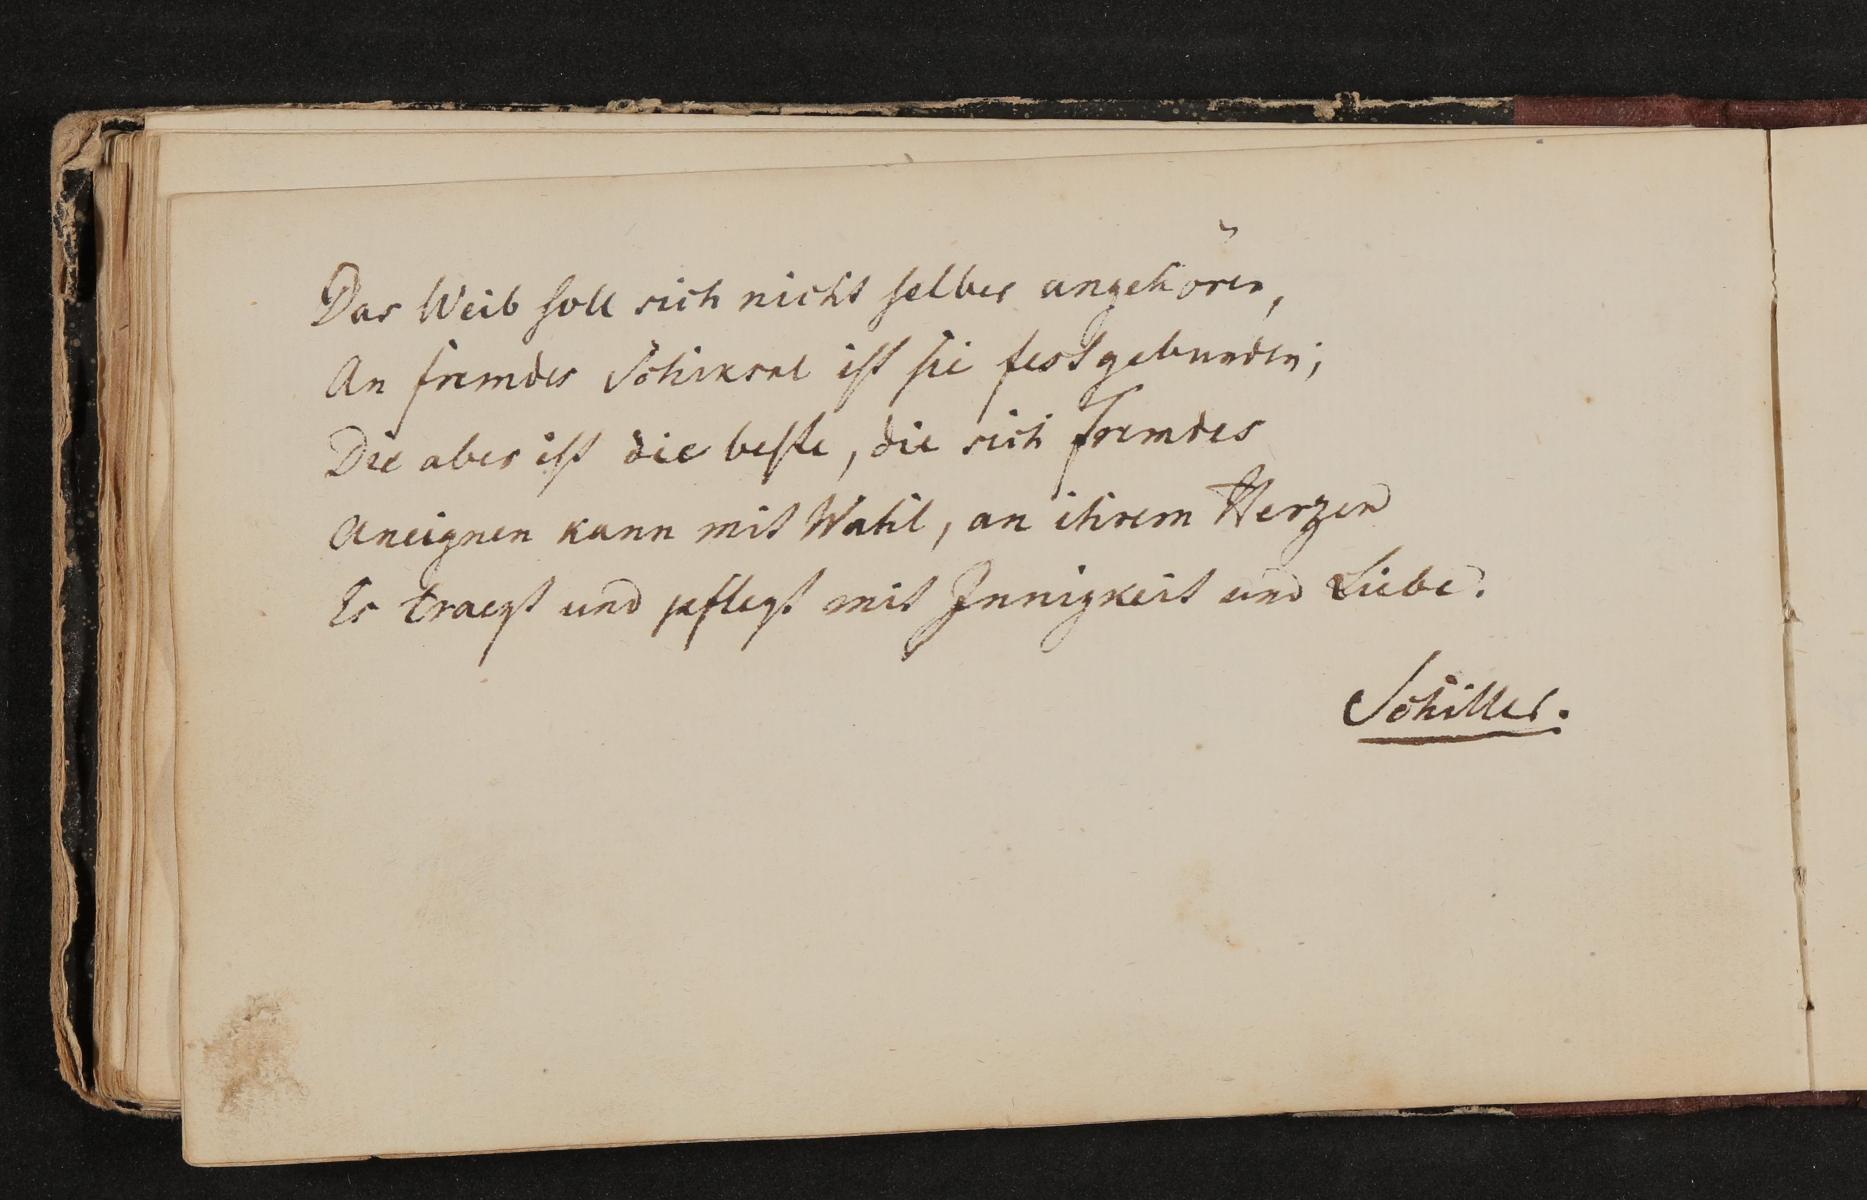 Das Weib soll sich nicht selber angehören,
An fremdes Schiksal ist sie festgebunden;
Die aber ist die beste, die sich Fremdes
Aneignen kann mit Wahl, an ihrem Herzen
Es traegt und pflegt mit Innigkeit und Liebe.
Schiller.